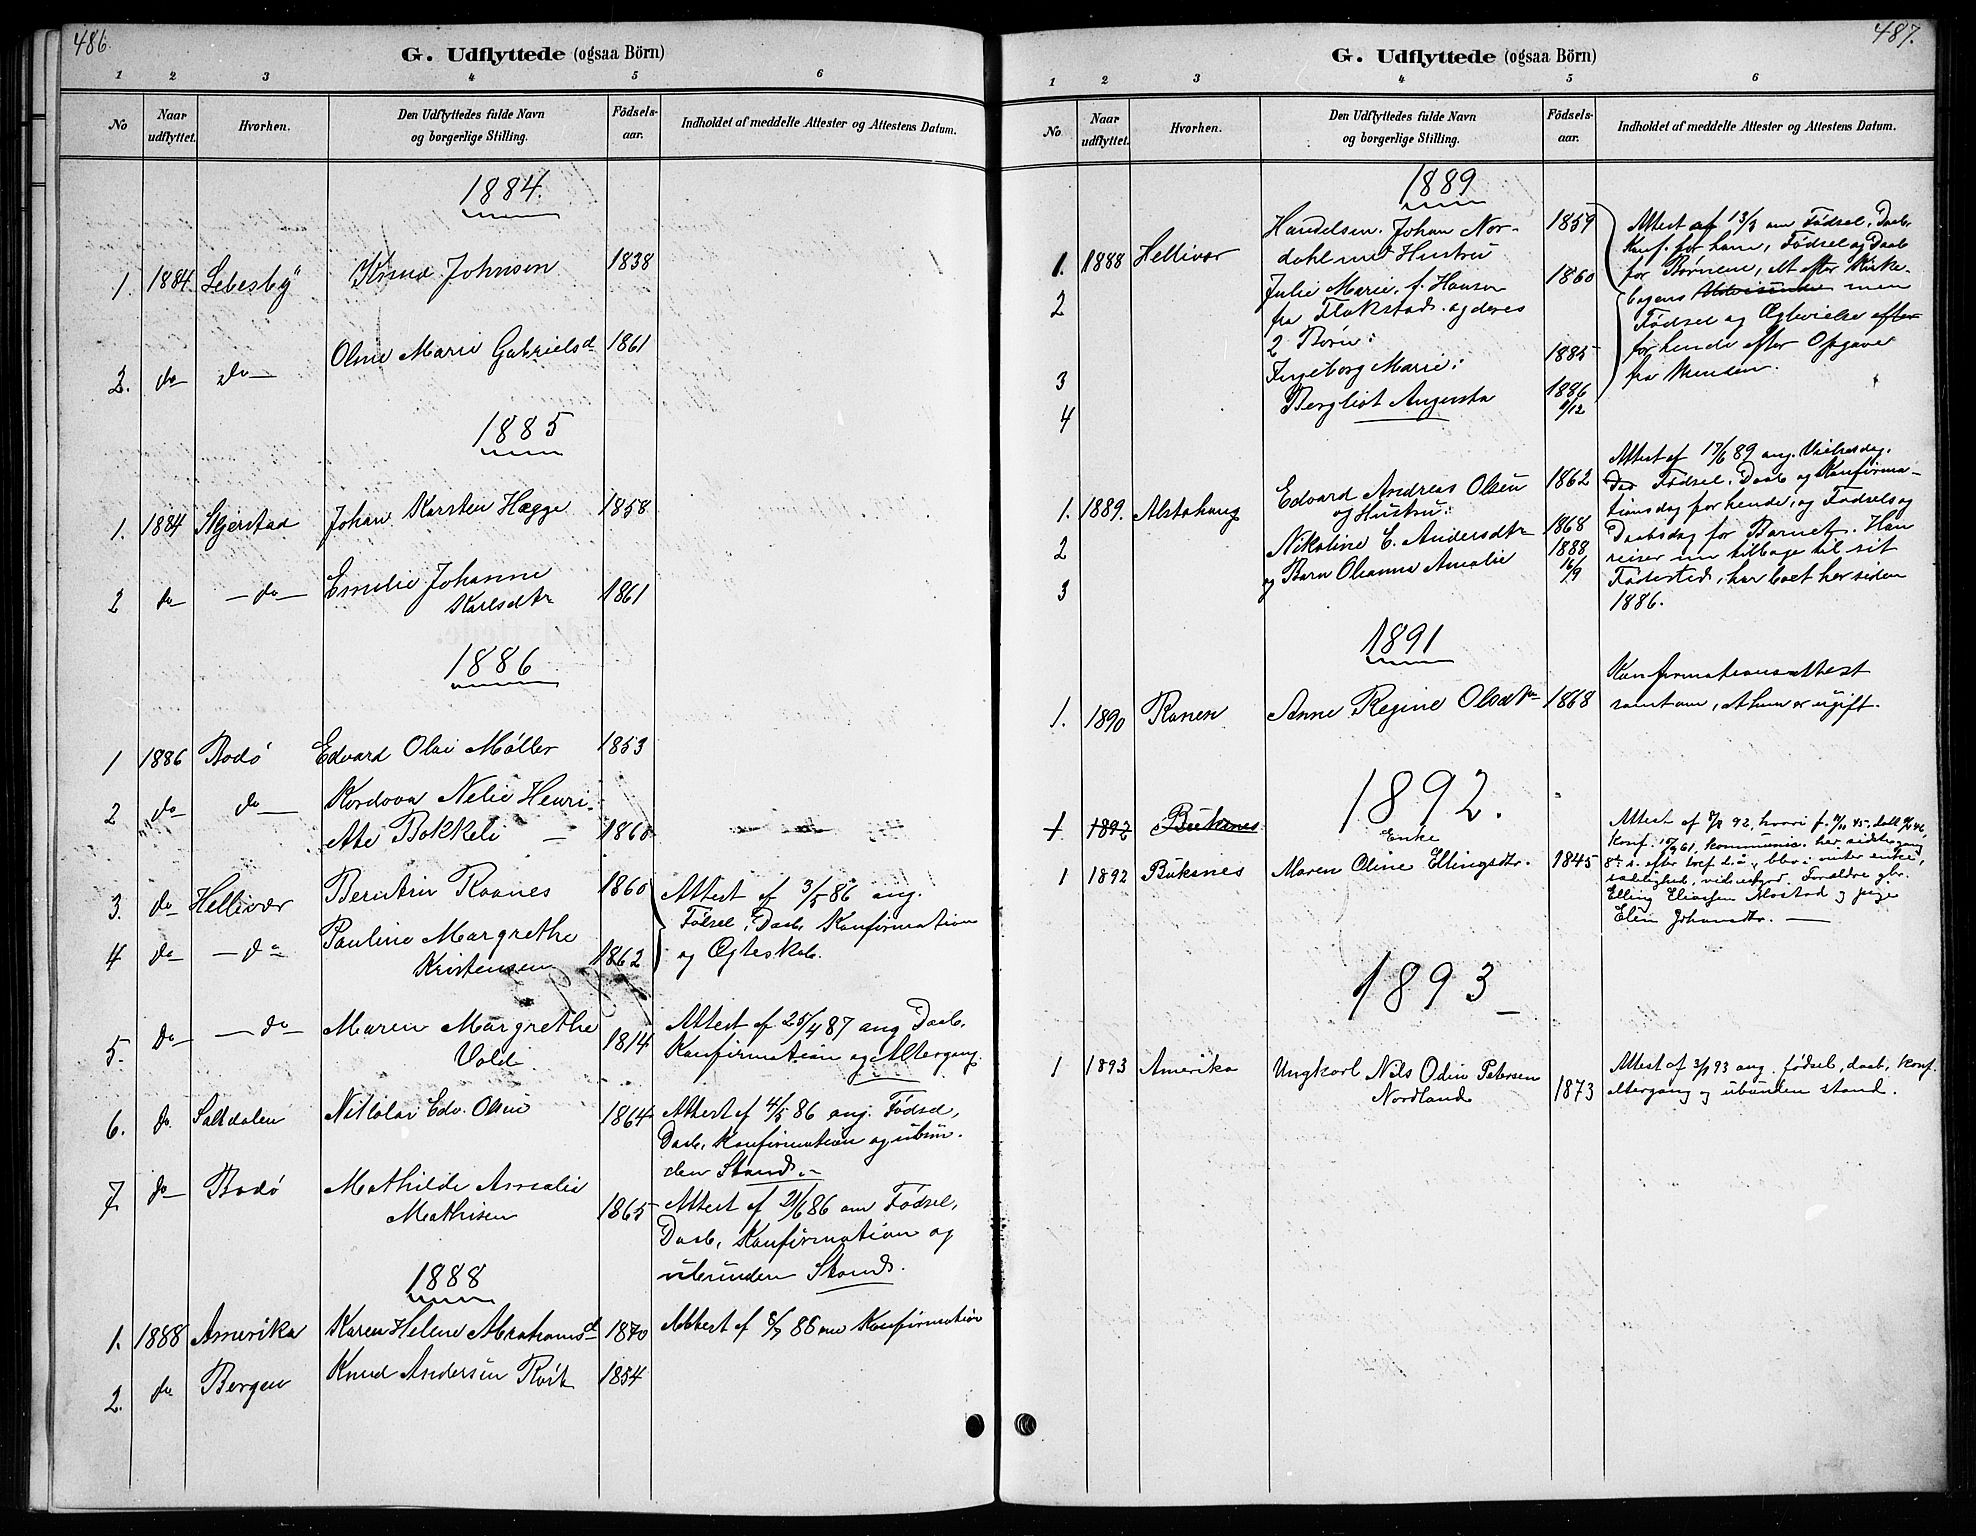 486.
G. Udflyttede (ogsaa Börn)
1 2 3 4 5 6
No
Naar udflyttet.
Hvorhen.
Den Udflyttedes fulde Navn og borgerlige Stilling.
Födsels-aar.
Indholdet af meddelte Attester og Attestens Datum.
1884.
1. 1884. Lebesby Knud Johnsen 1838
2. do do Oline Marie Gabrielsd 1861
1885
1. 1884 Skjerstad Johan Karsten Hægge 1858
2 do do Emelie Johanne
Karlsdtr 1861
1886
1 1886 Bodø Edvard Olai Møller 1853
2 do do Kordova Nelie Henri-
ette Bokkeli 1860
3. do Hellivær Berntin Raanes 1860 Attest af 3/5 86 ang.
Fødsel, Daab, Konfirmation
4 do do Pauline Margrethe
Kristensen 1862 og Ægteskab.
5. do do Maren Margrethe
Vold 1814 Attest af 25/4 87 ang Daab,
Konfirmation og Altergang.
6. do Saltdalen Nikolai Edv. Olsen 1864 Attest af 4/5 86 ang. Fødsel,
Daab, Konfirmation og ubun-
den Stand.
7. do Bodø Mathilde Amalie
Mathisen 1865 Attest af 21/6 86 om Fødsel,
Daab, Konfirmation og
ubunden Stand.
1888
1. 1888 Amerika Karen Helene Abrahamsd 1870 Attest af 86 om Konfirmation
2. do Bergen Knud Andersen 1854
487.
G. Udflyttede (ogsaa Börn)
1 2 3 4 5 6
No
Naar udflyttet.
Hvorhen.
Den Udflyttedes fulde Navn og borgerlige Stilling.
Födsels-aar.
Indholdet af meddelte Attester og Attestens Datum.
1889
1. 1888 Hellivær Johan Nor-
dahl med Hustru 1859
2 Julie Marie, f. Hansen 1860
fra Flakstad og deres
2 Børn:
3 Ingeborg Marie: 1885
4 Bergliot Augusta 1886
9/12
Attest af 13/3 om Fødsel, Daab,
Konf. for ham, Fødsel og Daab
for Børnene, alt efter Kirke-
bogens men
Fødsel og Ægtevielse efter
for hende efter Opgaver
fra Manden.
1. 1889. Alstahaug Edvard Andreas Olsen 1862
og Hustru:
2 Nikoline E. Andersdtr 1868
3 og Barn Oleanna Amalie 1888
16/9
Attest af 17/6 89 ang. Vielsesdag,
Fødsel, Daab og Konfirma-
tionsdag for hende, og Fødsels og
Daabsdag for Barnet. Han
reiser nu tilbage til sit
Fødested, har boet her siden
1886.
1891
1. 1890 Ranen Anne Regine Olsdtr 1868 Konfirmationsattest
samt om, at hun er ugift.
1892.
1 1892 Buksnes
1 1892 Buksnes Enke
Maren Oline Ellingsdtr. 1845
Attest af 92, hvori f. 45, døbt 46,
konf. 61, kommunic. her sidste gang
enke,
sædelighed, Forældre gbr.
Elling Eliassen Mostad og pige
Elen Johansdtr.
1893
1 1893 Amerika Ungkarl Nils Odin Petersen
Nordland 1873
Attest af 93 ang. fødsel, daab, konf.
altergang og ubunden stand.